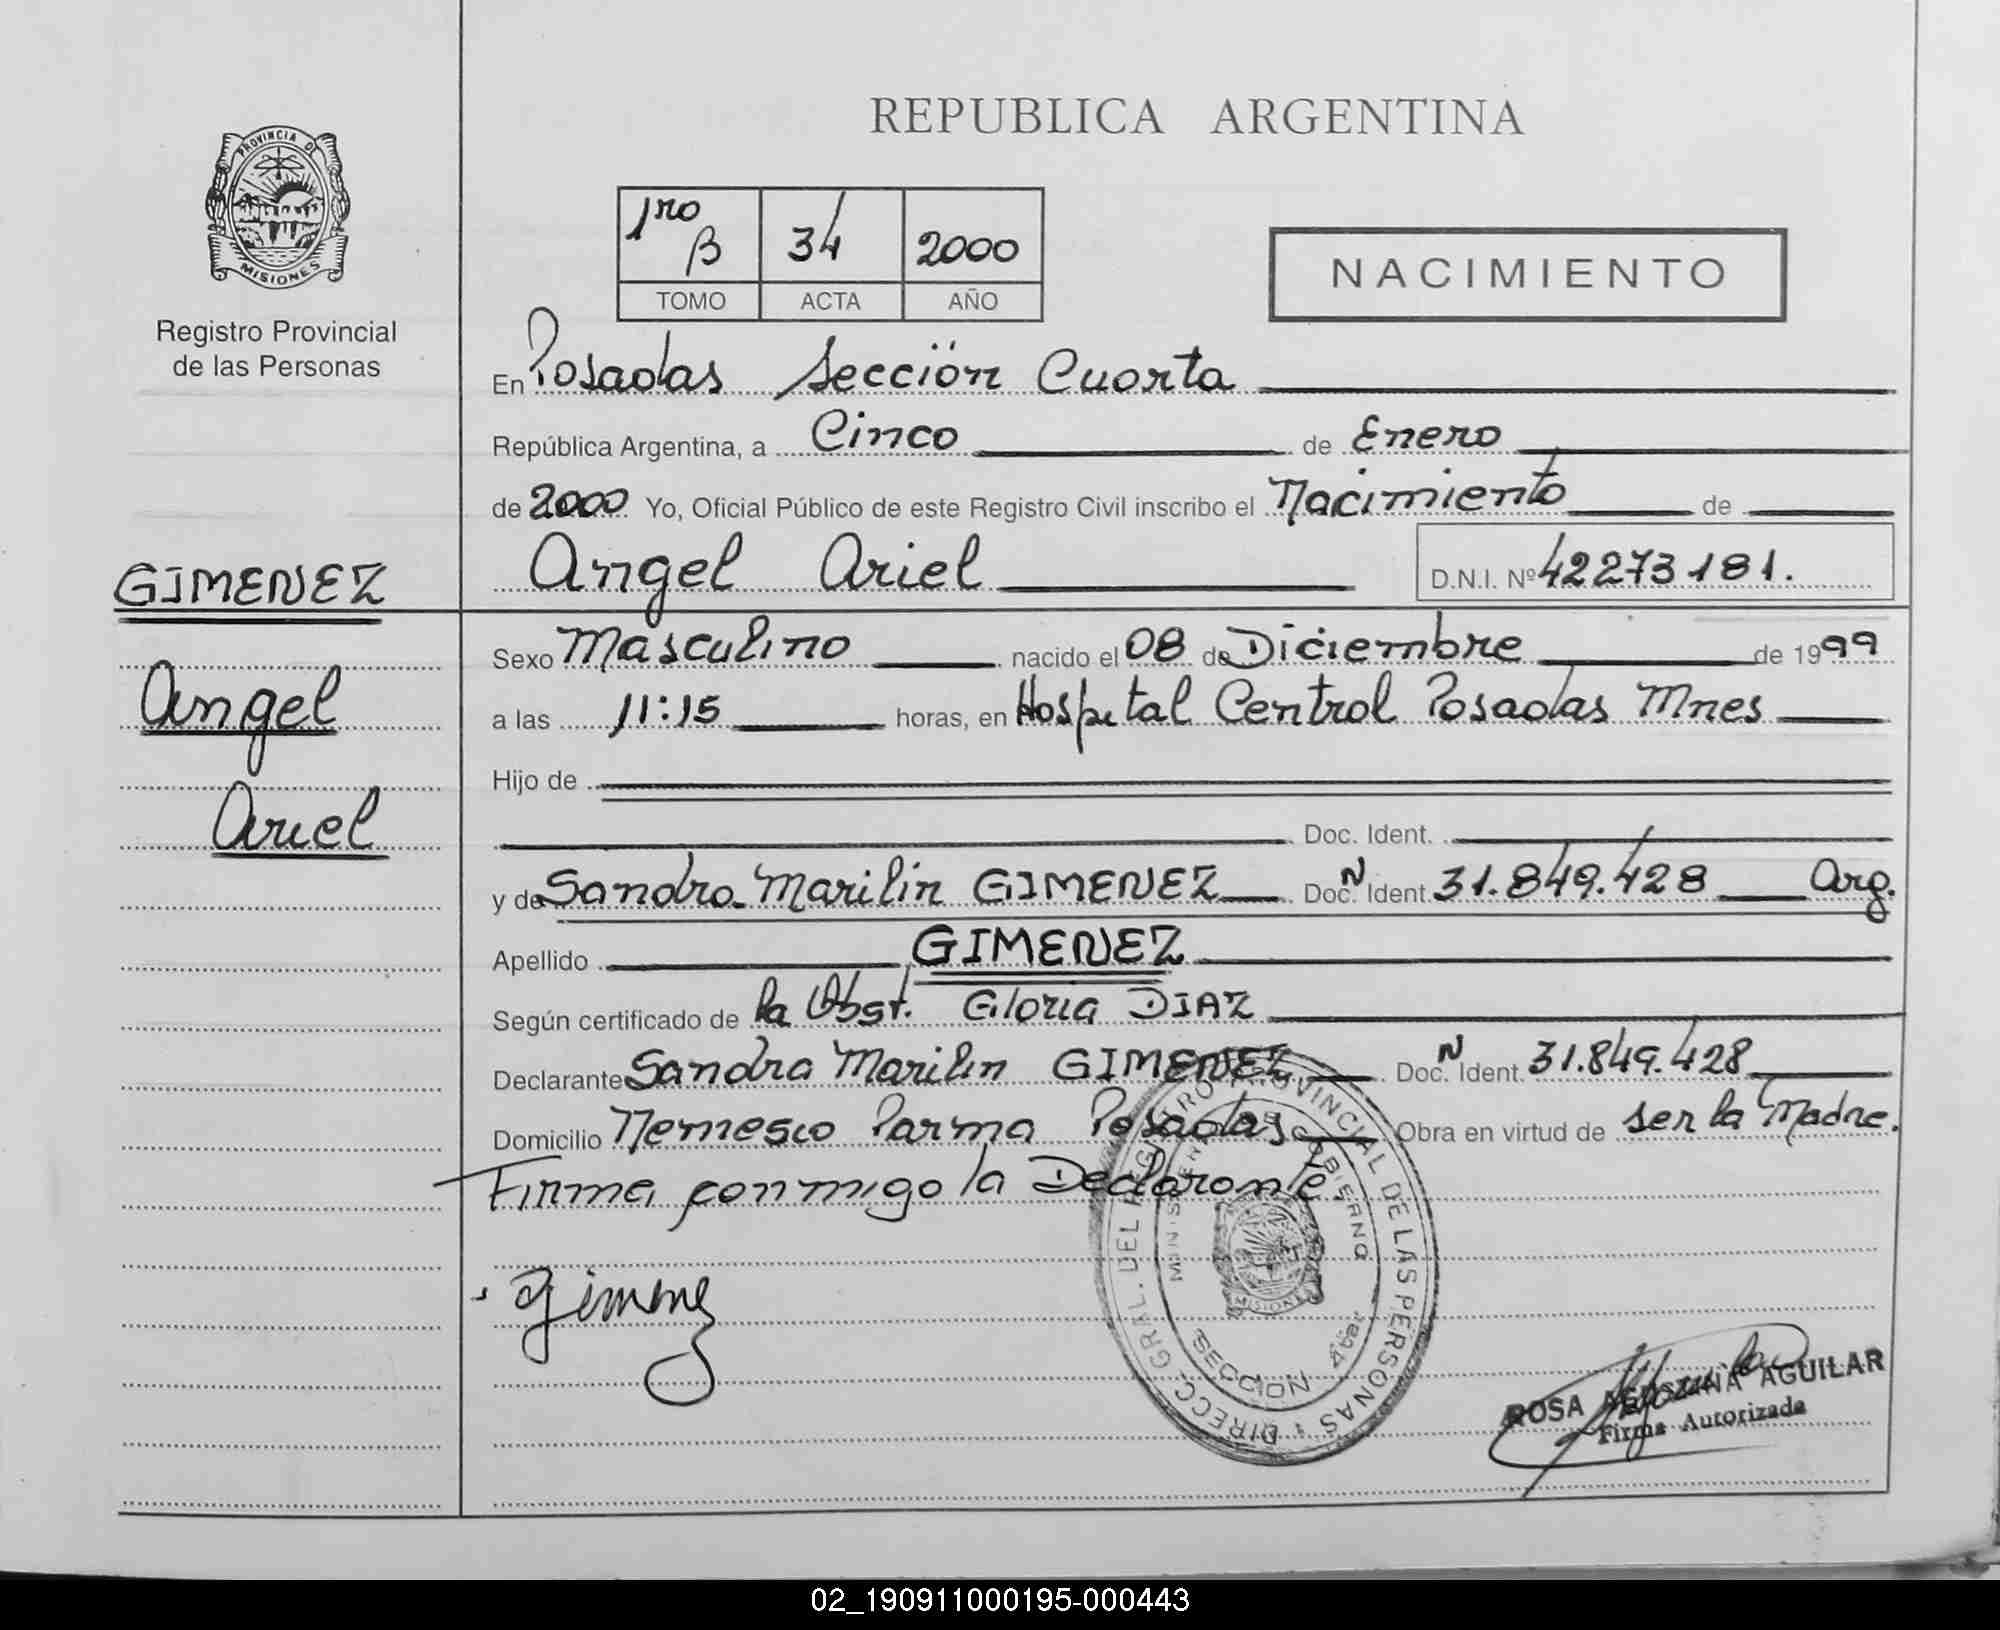 REPUBLICA ARGENTINA
PROVINCIA DE
MISIONES
Registro Provincial
de las Personas
1ro B 34 2000
TOMO ACTA AÑO
NACIMIENTO
En Posadas Sección Cuarta
República Argentina, a Cinco de Enero
de 2000 Yo, Oficial Público de este Registro Civil inscribo el Nacimiento de
Angel Ariel D.N.I. Nº 42273181.
GIMENEZ
Angel
Ariel
Sexo Masculino nacido el 08 de Diciembre de 1999
a las 11:15 horas, en Hospital Central Posadas Mnes
Hijo de
Doc. Ident.
y de Sandra Marilin GIMENEZ Doc. N Ident. 31.849.428 Arg.
Apellido GIMENEZ
Según certificado de la Obst. Gloria DIAZ
Declarante Sandra Marilin GIMENEZ Doc. N Ident. 31.849.428
Domicilio Nemesio Parma Posadas Obra en virtud de ser la Madre.
Firma conmigo la Declarante.
Gimenez
DIRECC. GRAL. DEL REGISTRO PROVINCIAL DE LAS PERSONAS
MINISTERIO DE GOBIERNO
MISIONES
SECCION 4ta
ROSA AGOSTINA AGUILAR
Firma Autorizada
02_190911000195-000443